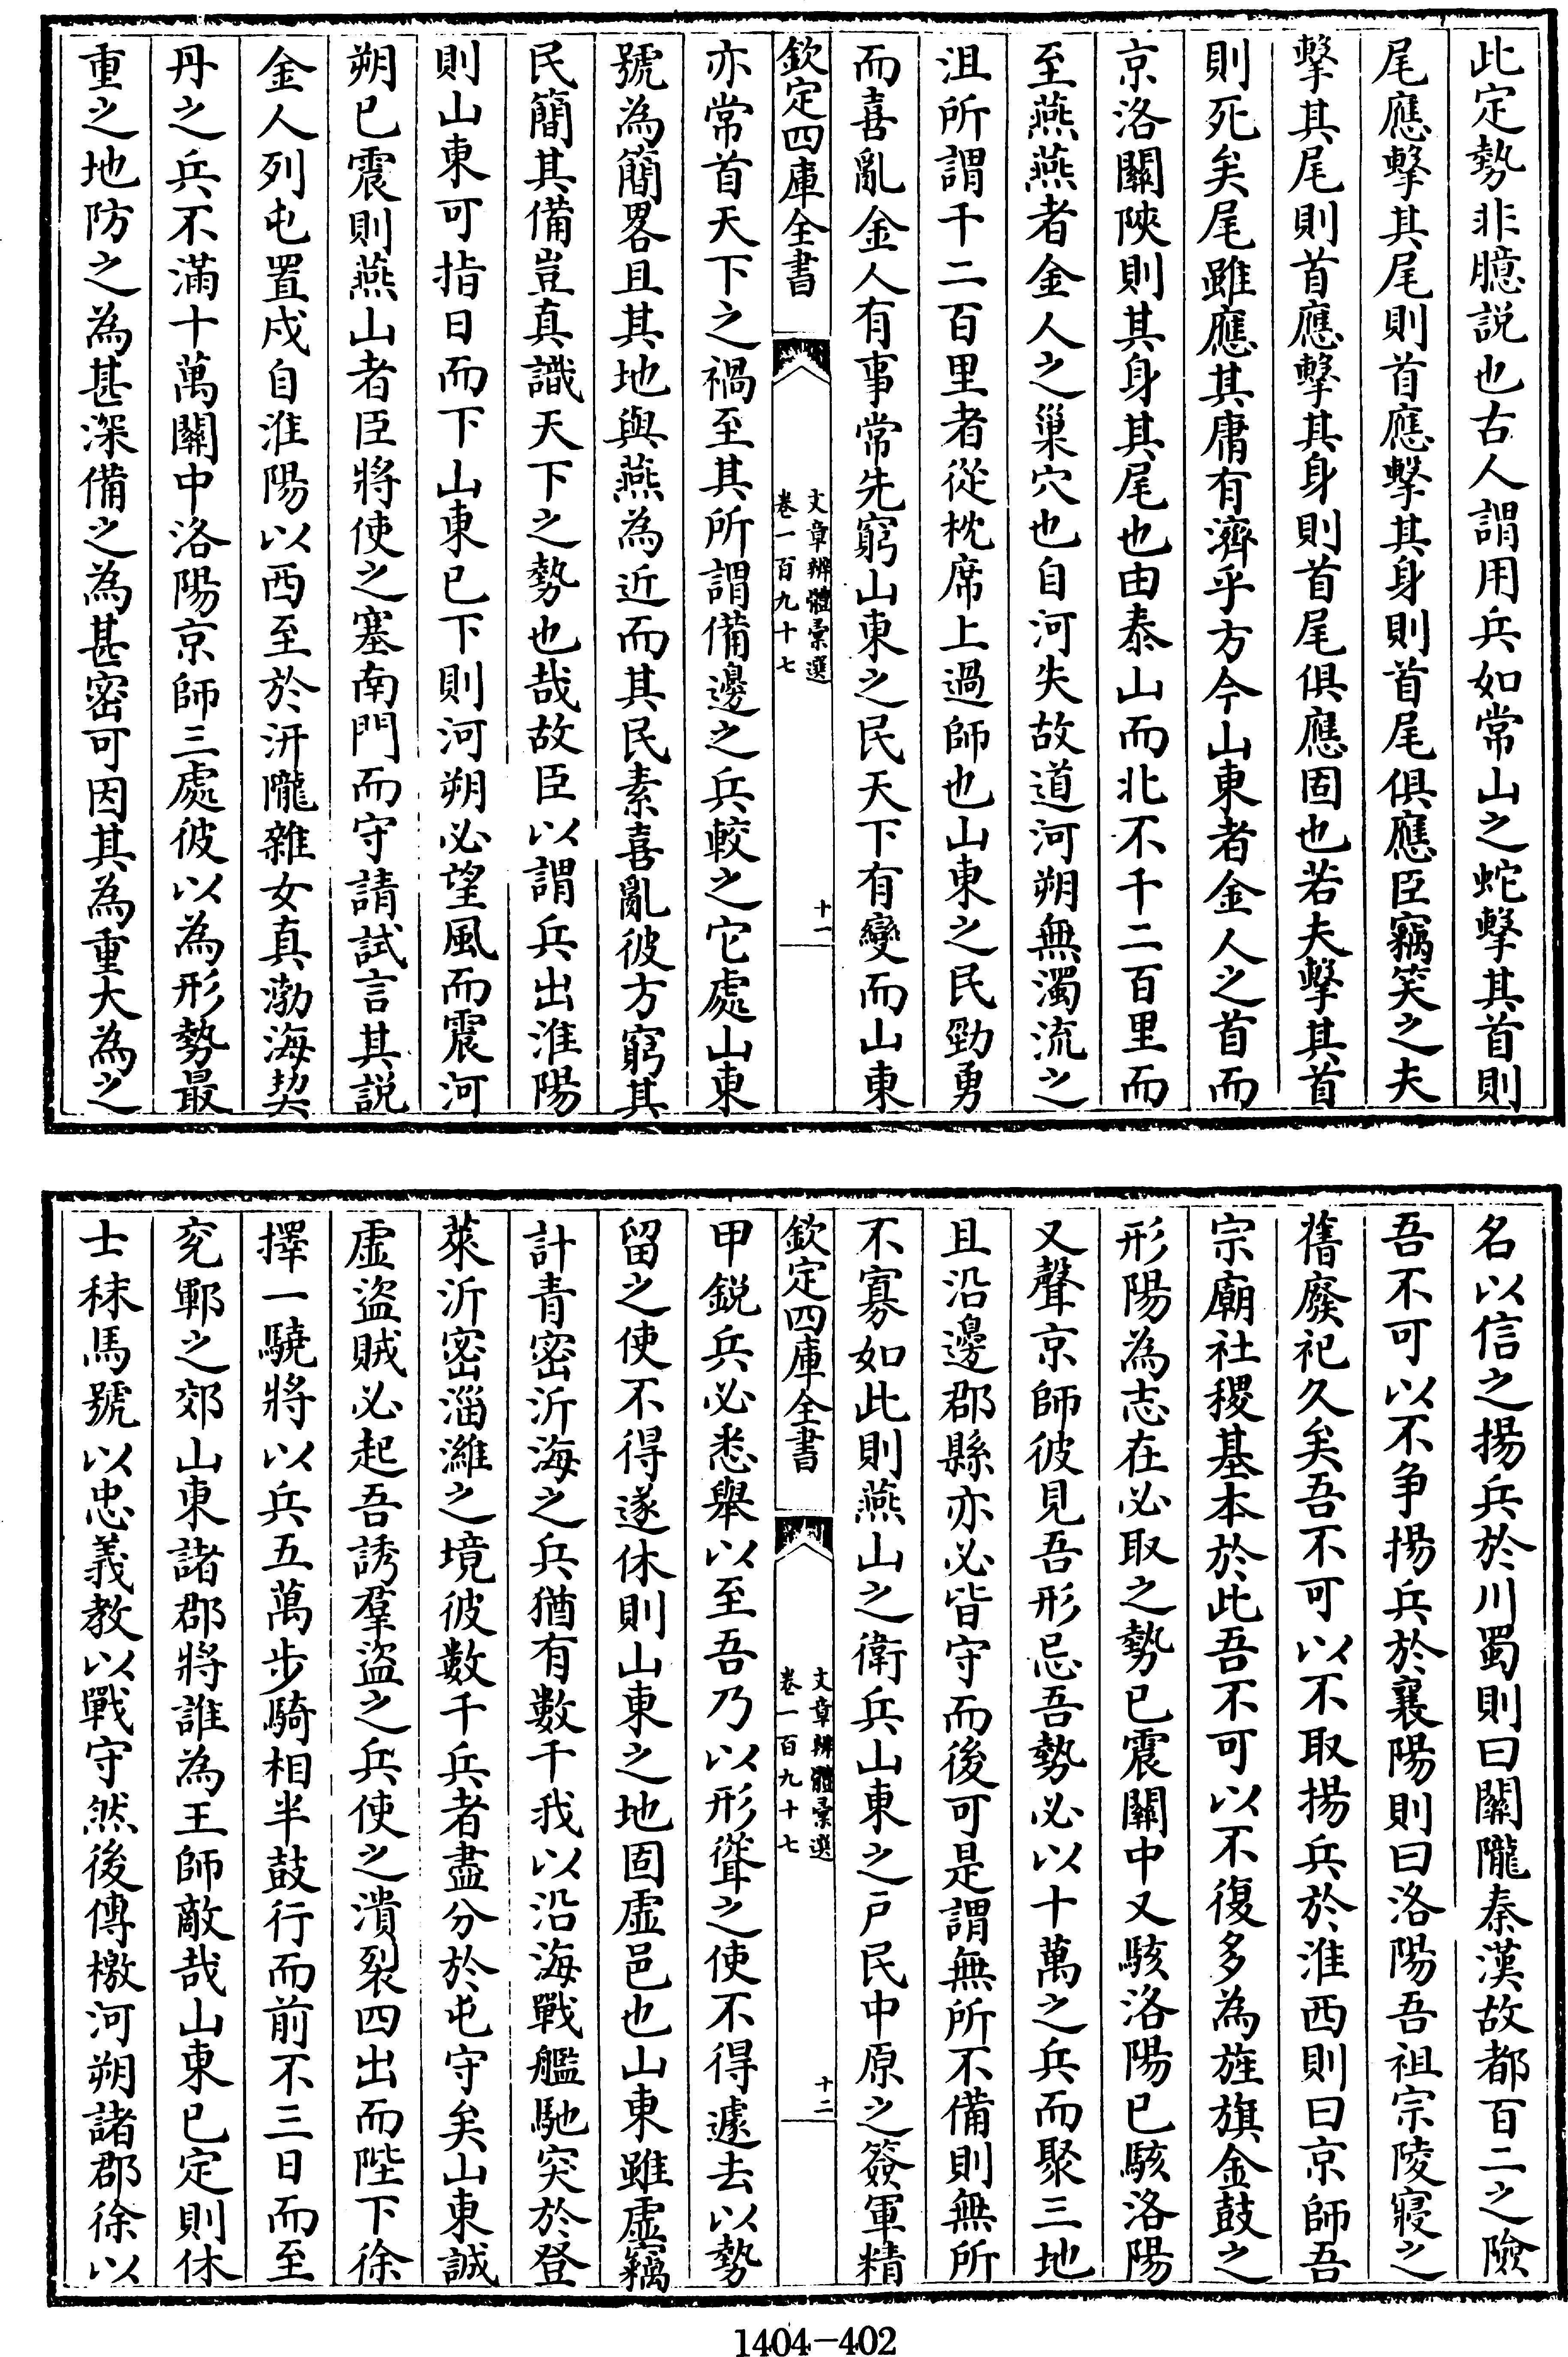 此定勢非臆説也古人謂用兵如常山之蛇擊其首則
尾應擊其尾則首應擊其身則首尾俱應臣竊笑之夫
擊其尾則首應擊其身則首尾俱應固也若夫擊其首
則死矣尾雖應其庸有濟乎方今山東者金人之首而
京洛關陝則其身其尾也由泰山而北不千二百里而
至燕燕者金人之巢穴也自河失故道河朔無濁流之
沮所謂千二百里者從枕席上過師也山東之民勁勇
而喜亂金人有事常先窮山東之民天下有變而山東
欽定四庫全書
文章辨體彙選
卷一百九十七
十一
亦常首天下之禍至其所謂備邊之兵較之它處山東
號為簡畧且其地與燕為近而其民素喜亂彼方窮其
民簡其備豈真識天下之勢也哉故臣以謂兵出淮陽
則山東可指日而下山東已下則河朔必望風而震河
朔已震則燕山者臣將使之塞南門而守請試言其説
金人列屯置戍自淮陽以西至於汧隴雜女真渤海契
丹之兵不滿十萬關中洛陽京師三處彼以為形勢最
重之地防之為甚深備之為甚密可因其為重大為之
名以信之揚兵於川蜀則曰關隴秦漢故都百二之險
吾不可以不争揚兵於襄陽則曰洛陽吾祖宗陵寢之
舊廢祀久矣吾不可以不取揚兵於淮西則曰京師吾
宗廟社稷基本於此吾不可以不復多為旌旗金鼓之
形陽為志在必取之勢已震關中又駭洛陽已駭洛陽
又聲京師彼見吾形忌吾勢必以十萬之兵而聚三地
且沿邊郡縣亦必皆守而後可是謂無所不備則無所
不寡如此則燕山之衛兵山東之戶民中原之簽軍精
欽定四庫全書
文章辨體彙選
卷一百九十七
十二
甲鋭兵必悉舉以至吾乃以形聳之使不得遽去以勢
留之使不得遂休則山東之地固虛邑也山東雖虛竊
計青密沂海之兵猶有數千我以沿海戰艦馳突於登
萊沂密淄濰之境彼數千兵者盡分於屯守矣山東誠
虛盜賊必起吾誘羣盜之兵使之潰裂四出而陛下徐
擇一驍將以兵五萬步騎相半鼓行而前不三日而至
兖鄆之郊山東諸郡將誰為王師敵哉山東已定則休
士秣馬號以忠義教以戰守然後傳檄河朔諸郡徐以
1404-402